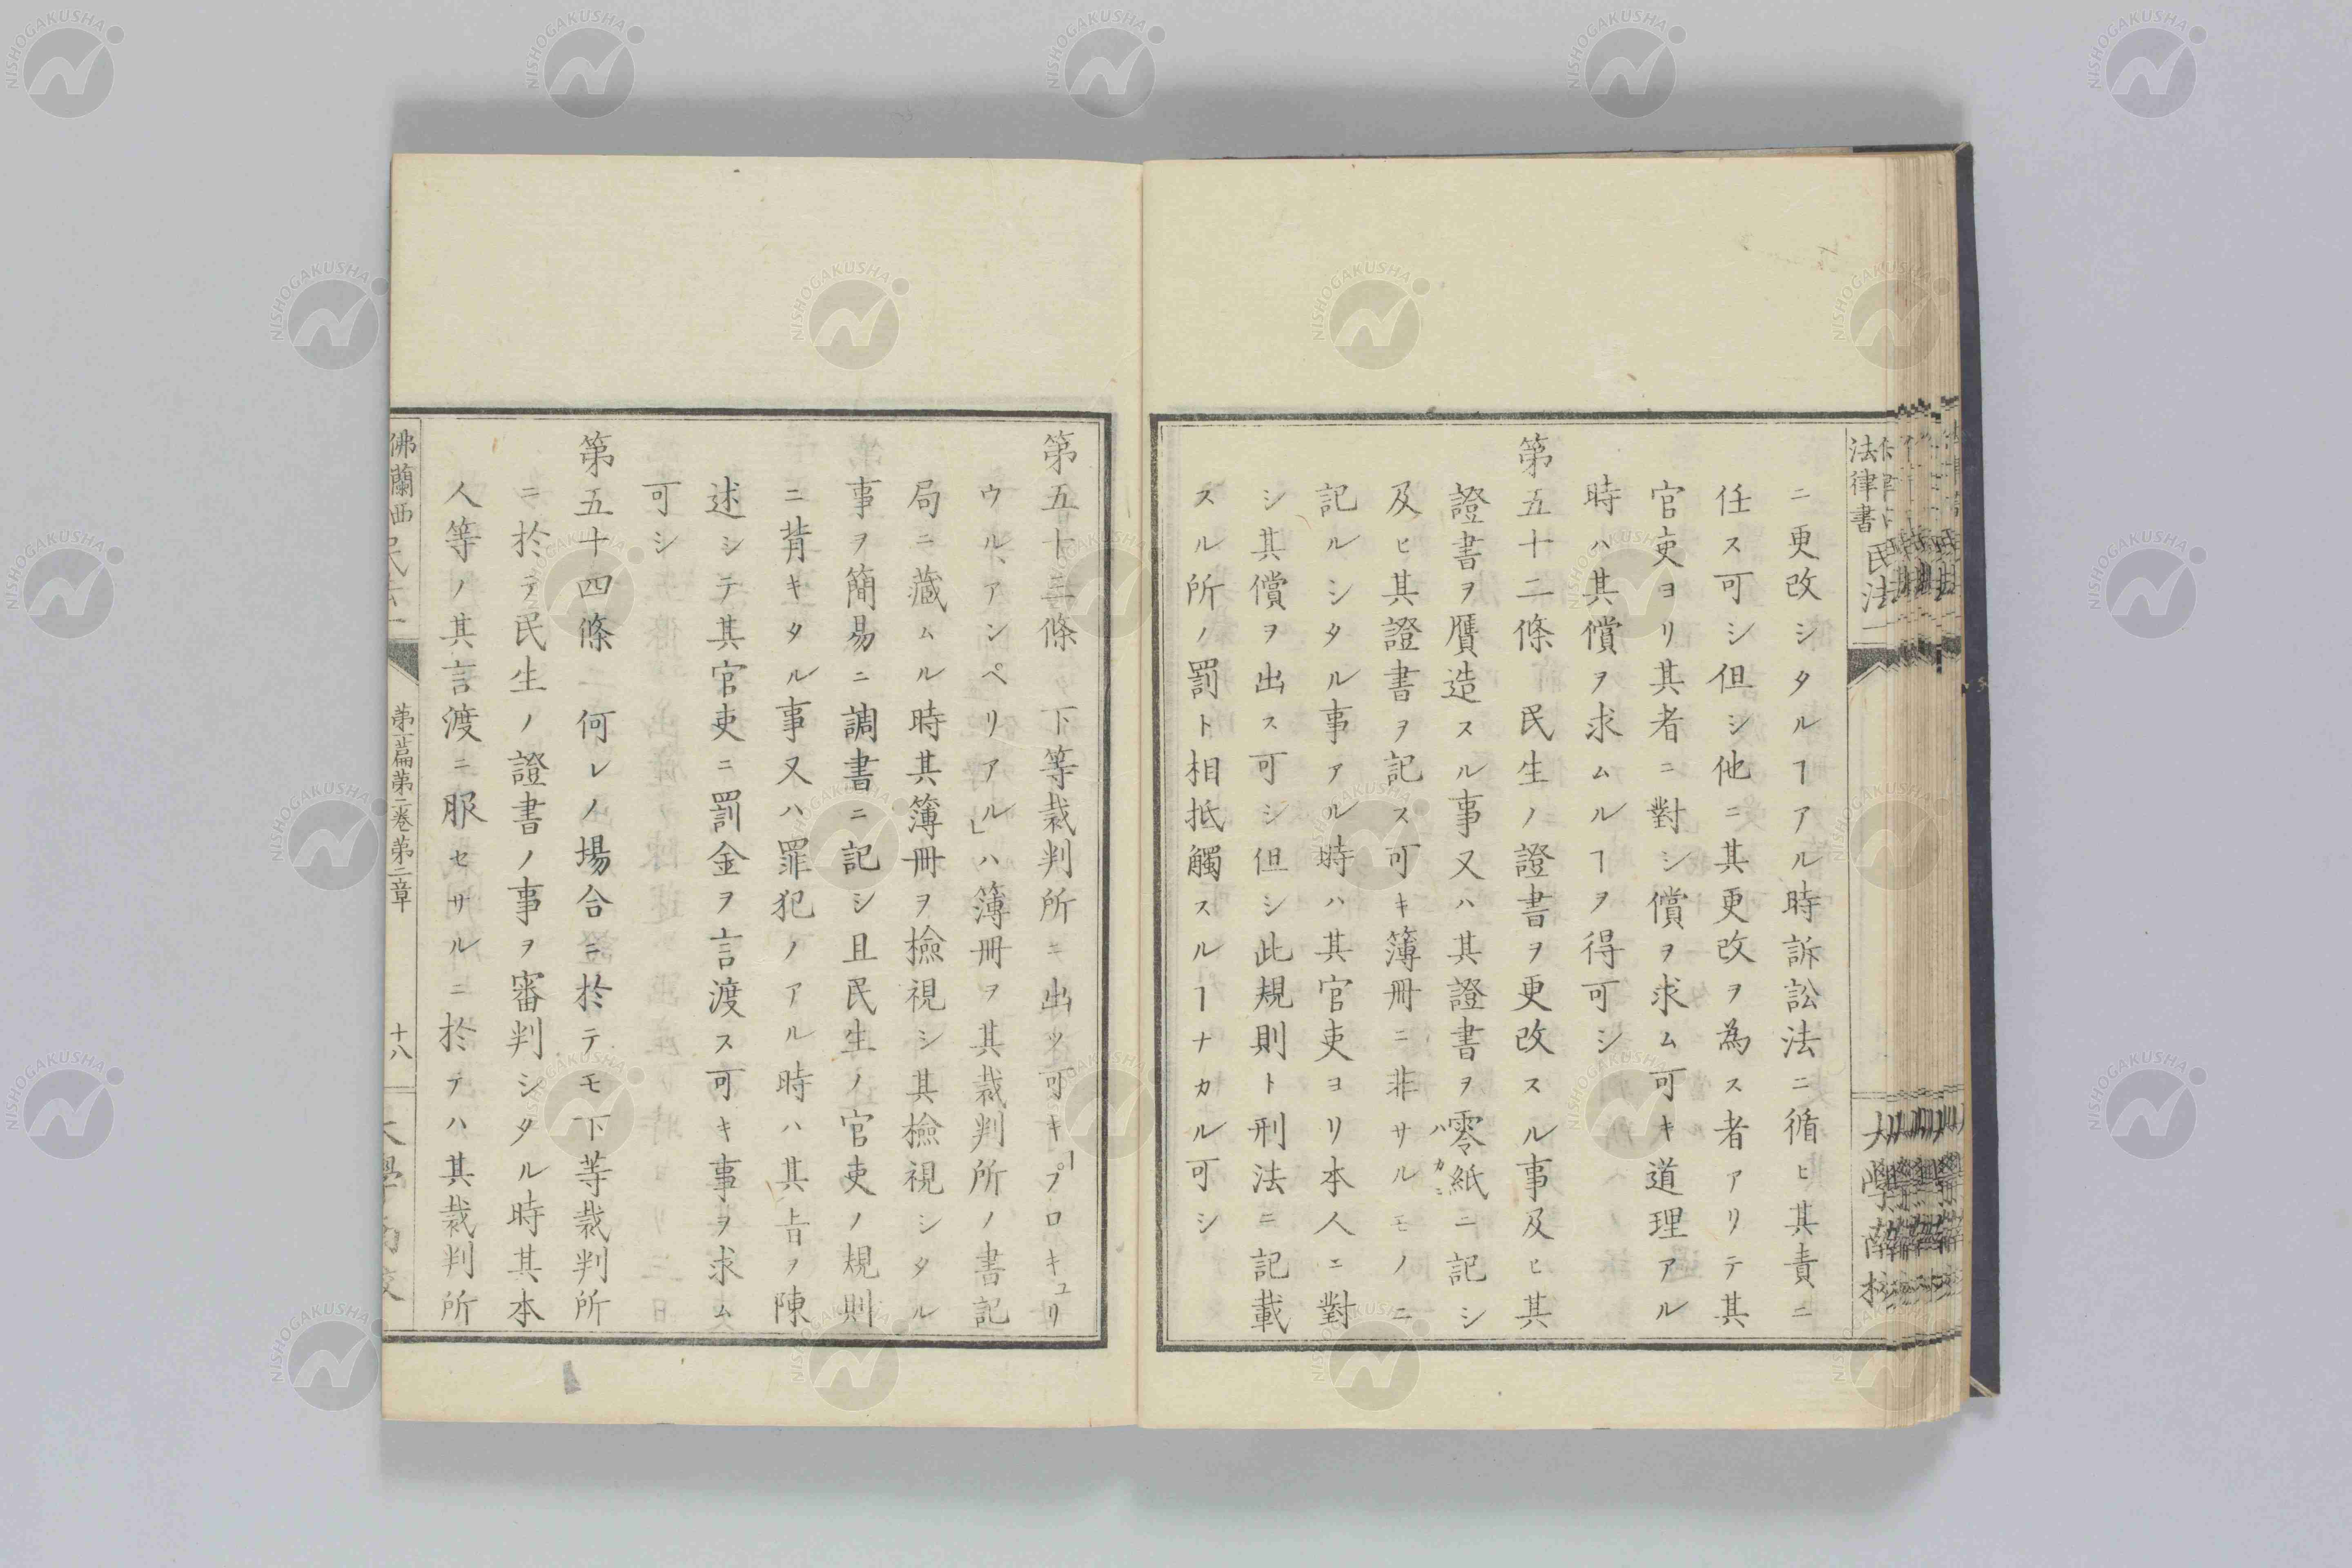 法律書 民法一
ニ更改シタルヿアル時訴訟法ニ循ヒ其責ニ
任ス可シ但シ他ニ其更改ヲ為ス者アリテ其
官吏ヨリ其者ニ對シ償ヲ求ム可キ道理アル
時ハ其償ヲ求ムルヿヲ得可シ
第五十二條 民生ノ證書ヲ更改スル事及ヒ其
證書ヲ贋造スル事又ハ其證書ヲ零紙ニ記シ
ハカミ
及ヒ其證書ヲ記ス可キ簿冊ニ非サルモノニ
記ルシタル事アル時ハ其官吏ヨリ本人ニ對
シ其償ヲ出ス可シ但シ此規則ト刑法ニ記載
スル所ノ罰ト相抵觸スルヿナカル可シ
第五十三條 下等裁判所ニ出ツ可キ「プロキュリ
ウル、アンペリアル」ハ簿冊ヲ其裁判所ノ書記
局ニ藏ムル時其簿冊ヲ檢視シ其檢視シタル
事ヲ簡易ニ調書ニ記シ且民生ノ官吏ノ規則
ニ背キタル事又ハ罪犯ノアル時ハ其旨ヲ陳
述シテ其官吏ニ罰金ヲ言渡ス可キ事ヲ求ム
可シ
第五十四條 何レノ場合ニ於テモ下等裁判所
ニ於テ民生ノ證書ノ事ヲ審判シタル時其本
人等ノ其言渡ニ服セサルニ於テハ其裁判所
佛蘭西民法一 第一篇第二巻第二章 十八
NISHOGAKUSHA